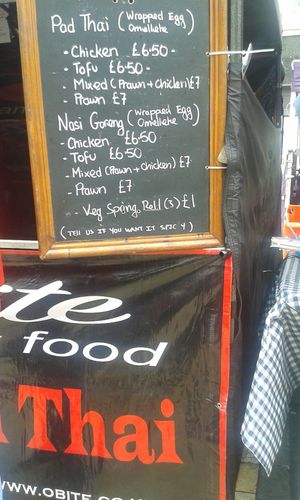 Pad Thai (Wrapped Egg
Omellette)
- Chicken £6.50 -
- Tofu £6.50 -
- Mixed (Prawn + Chicken) £7
- Prawn £7
Nasi Goreng (Wrapped Egg
Omellette)
- Chicken £6.50
- Tofu £6.50
- Mixed (Prawn + Chicken) £7
- Prawn £7
- Veg Spring Roll (3) £1
(TELL US IF YOU WANT IT SPICY)
food
Thai
WWW.OBITE.CO